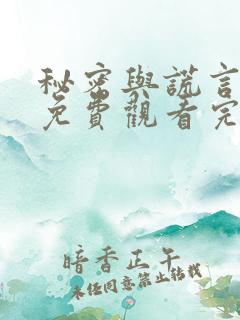 秘密與謊言
免費觀看完
暗香正午
未经同意禁止转载